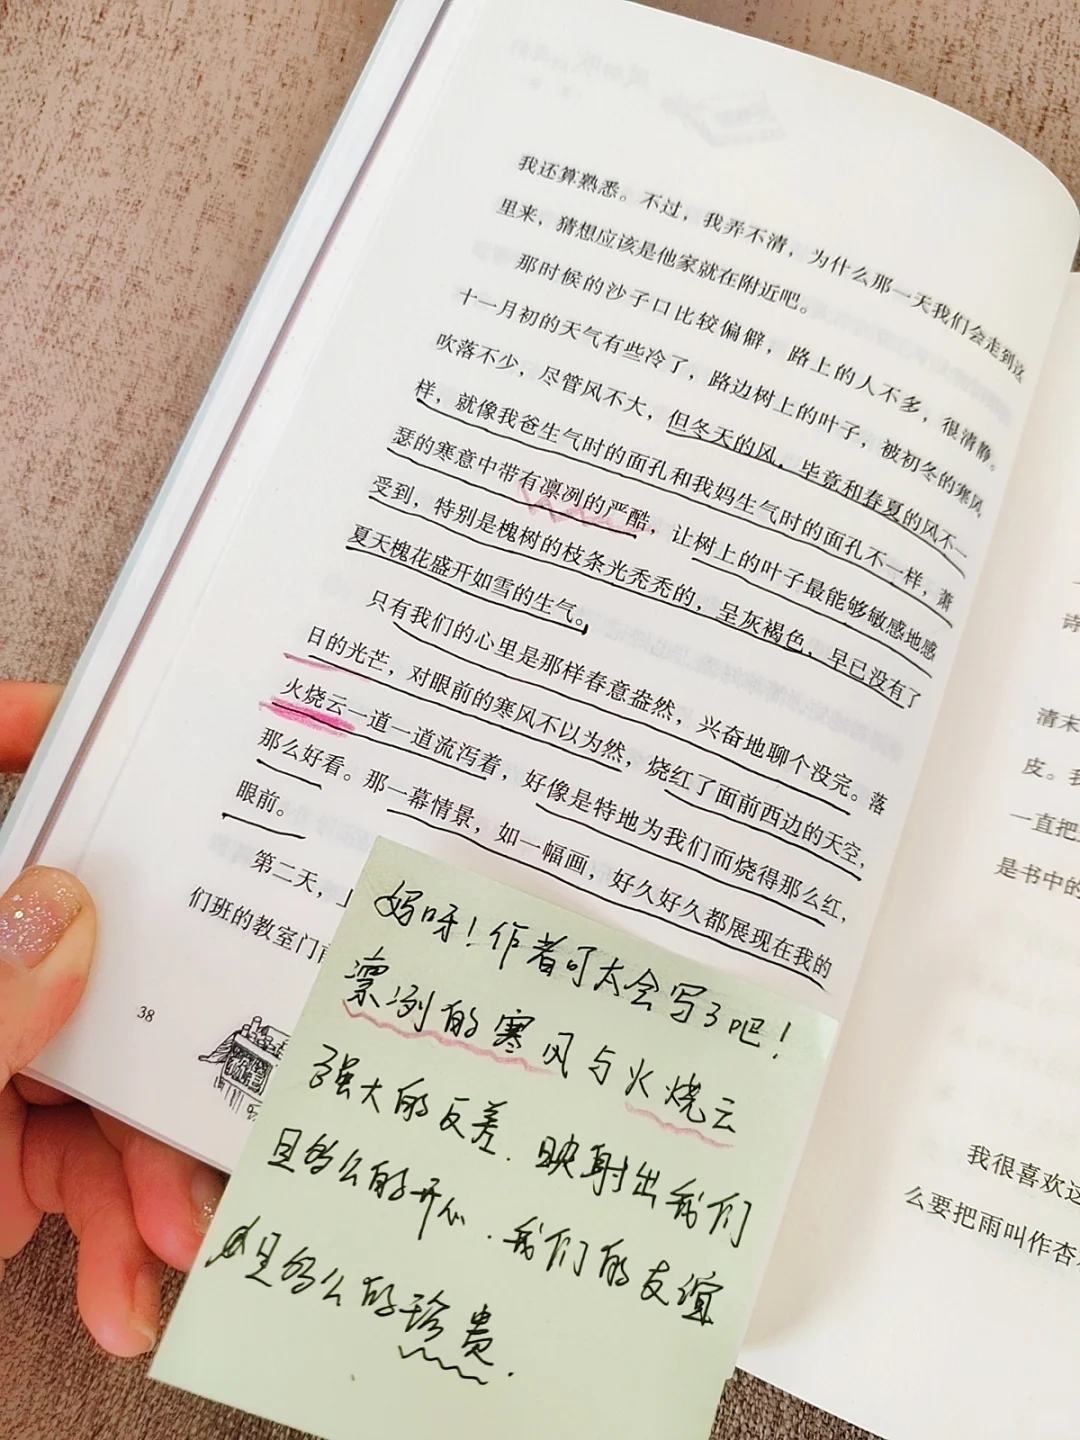 我还算熟悉。不过，我弄不清，为什么那一天我们会走到这
里来，猜想应该是他家就在附近吧。
那时候的沙子口比较偏僻，路上的人不多，很清静。
十一月初的天气有些冷了，路边树上的叶子，被初冬的寒风
吹落不少，尽管风不大，但冬天的风，毕竟和春夏的风不一
样，就像我爸生气时的面孔和我妈生气时的面孔不一样，萧
瑟的寒意中带有凛冽的严酷，让树上的叶子最能够敏感地感
受到，特别是槐树的枝条光秃秃的，呈灰褐色，早已没有了
夏天槐花盛开如雪的生气。
只有我们的心里是那样春意盎然，兴奋地聊个没完。落
日的光芒，对眼前的寒风不以为然，烧红了面前西边的天空，
火烧云一道一道流泻着，好像是特地为我们而烧得那么红，
那么好看。那一幕情景，如一幅画，好久好久都展现在我的
眼前。
第二天，
们班的教室门前
38
妈呀！作者可太会写了吧！
凛冽的寒风与火烧云
强大的反差．映射出我们
是多么的开心．我们的友谊
是多么的珍贵．
诗
清末
皮。我
一直把
是书中的
我很喜欢这
么要把雨叫作杏